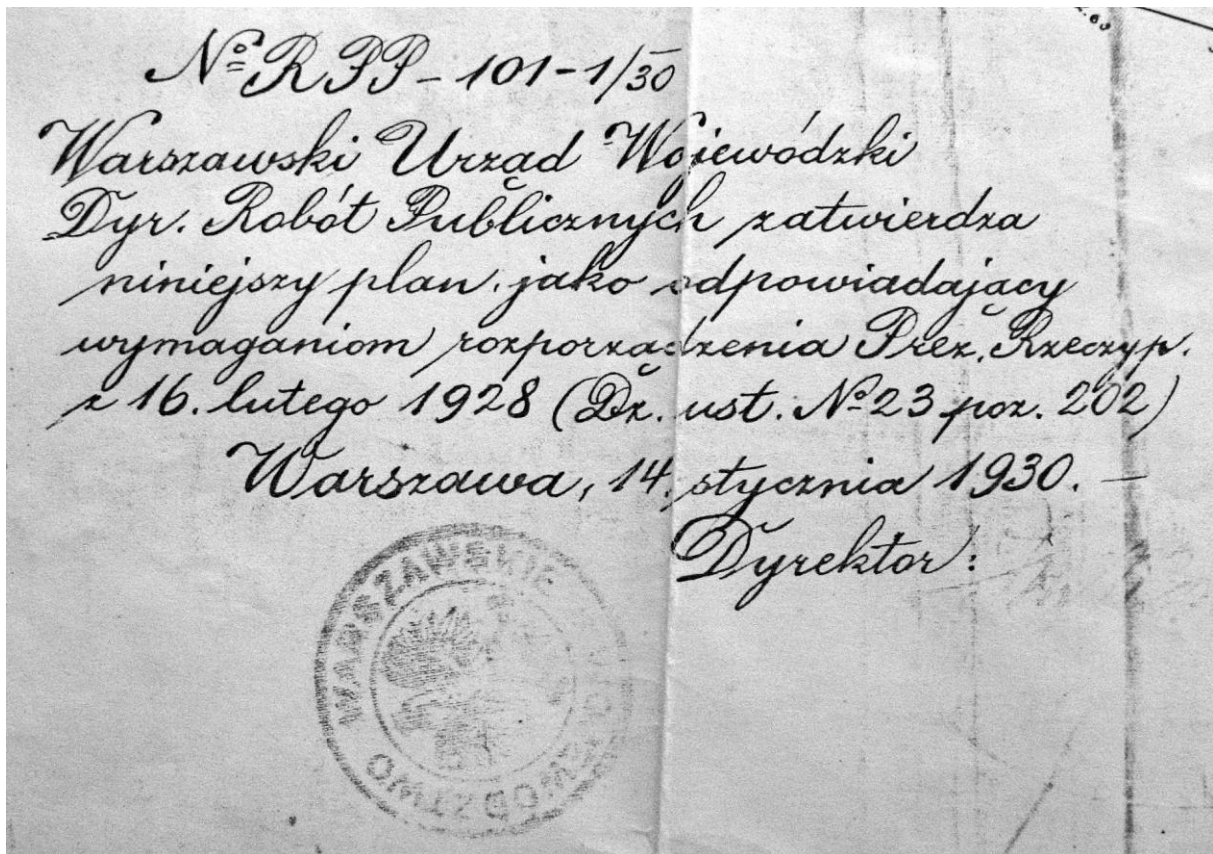 № RPP - 101 - 1/30
Warszawski Urząd Wojewódzki
Dyr. Robót Publicznych zatwierdza
niniejszy plan, jako odpowiadający
wymaganiom rozporządzenia Prez. Rzeczyp.
z 16. lutego 1928 (Dz. ust. № 23 poz. 202)
Warszawa, 14. stycznia 1930. —
Dyrektor:
WARSZAWSKIE